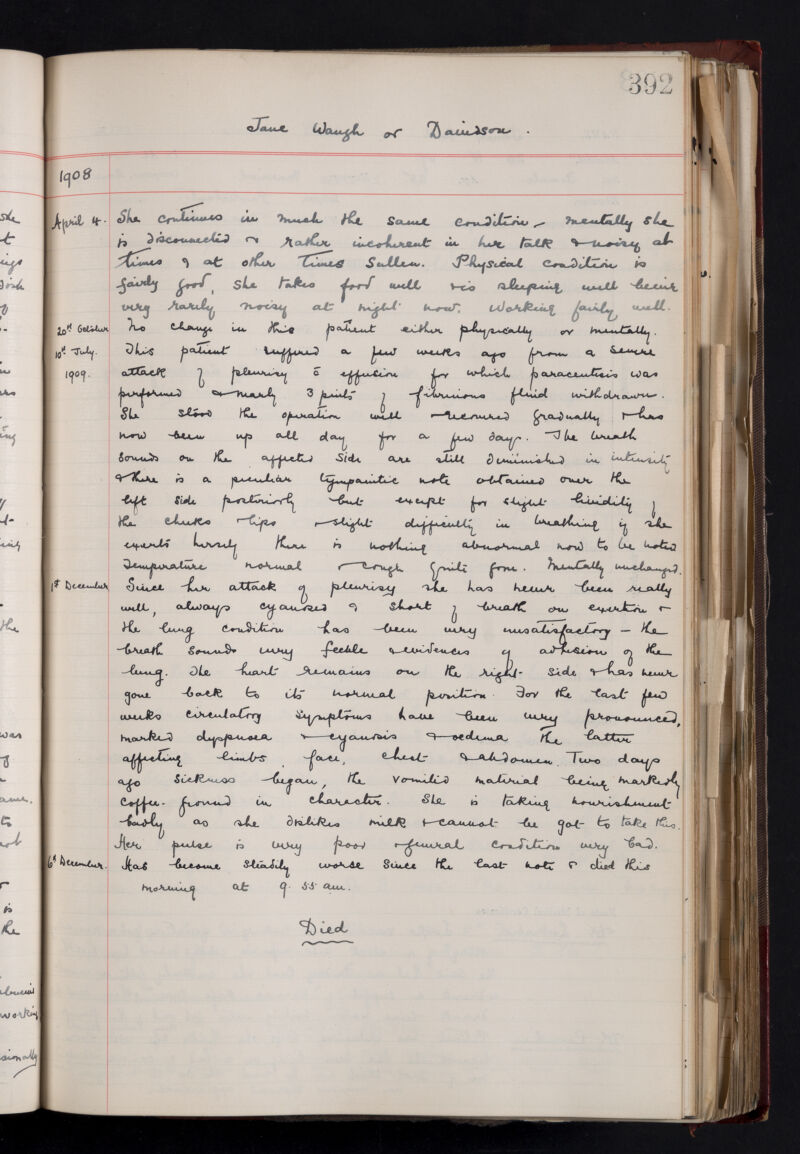 392
Jane Waugh or Davidson.
1908
April 4. She continues in much the same condition, - mentally she
is disconnected & rather incoherent in her talk & noisy at
times & at other times sullen. Physical condition is
fairly good, she takes food well & is sleeping well being
very rarely noisy at night now. Working fairly well.
20th October No change in this patient either physically or mentally.
10th July. This patient suffered a few weeks ago from a severe
1909. attack of pleurisy c̄ effusion for which paracentesis was
performed & nearly 3 pints of fibrinous fluid withdrawn.
She stood the operation well & recovered gradually & has
now been up all day for a few days. The breath
sounds on the affected side are still diminished in intensity
& there is a peculiar tympanitic note obtained over the
left side posteriorly but except for slight lividity of
the cheeks & lips & slight difficulty in breathing if she
exerts herself there is nothing abnormal now to be noted
Temperature normal & cough quite gone. Mentally unchanged.
1st December Since her attack of pleurisy she has never been really
well, always cyanosed & short of breath on exertion &
the lung condition has been very unsatisfactory - the
breath sounds very feeble & evidences of adhesion of the
lung. The heart remains on the right side & has never
gone back to its normal position. For the last few
weeks circulatory symptoms have been very pronounced,
marked dyspnoea & cyanosis & oedema the latter
affecting limbs, face, chest & abdomen. Two days
ago sickness began, the vomited material being markedly
coffee-ground in character. She is taking nourishment
badly as she dislikes milk & cannot be got to take this.
Her pulse is very poor & general condition very bad.
6th December. Has become steadily worse since the last note & died this
morning at 9.55 am.
Died